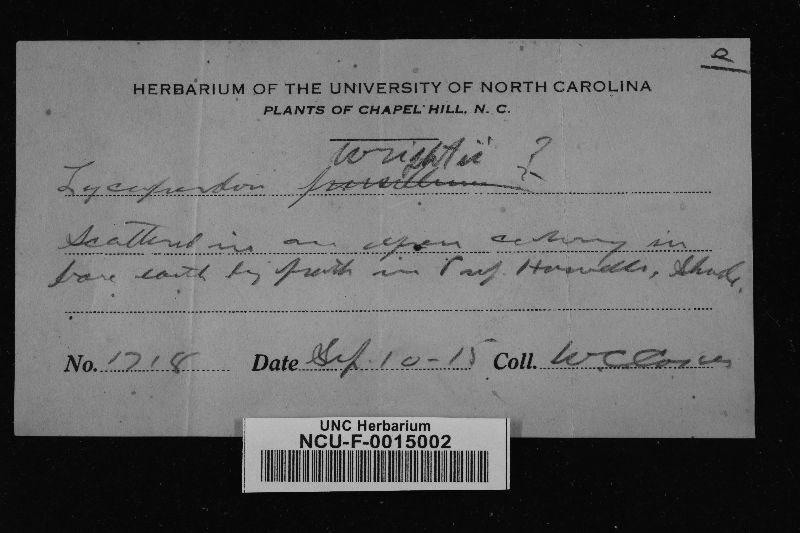 e
HERBARIUM OF THE UNIVERSITY OF NORTH CAROLINA
PLANTS OF CHAPEL HILL, N. C.
Wrightii
Lycoperdon pusillum ?
Scattered in an open in
bare earth by path in Prof. Howell's, Shade.
No. 1718 Date Sep. 10-15 Coll. W.C. Coker
UNC Herbarium
NCU-F-0015002